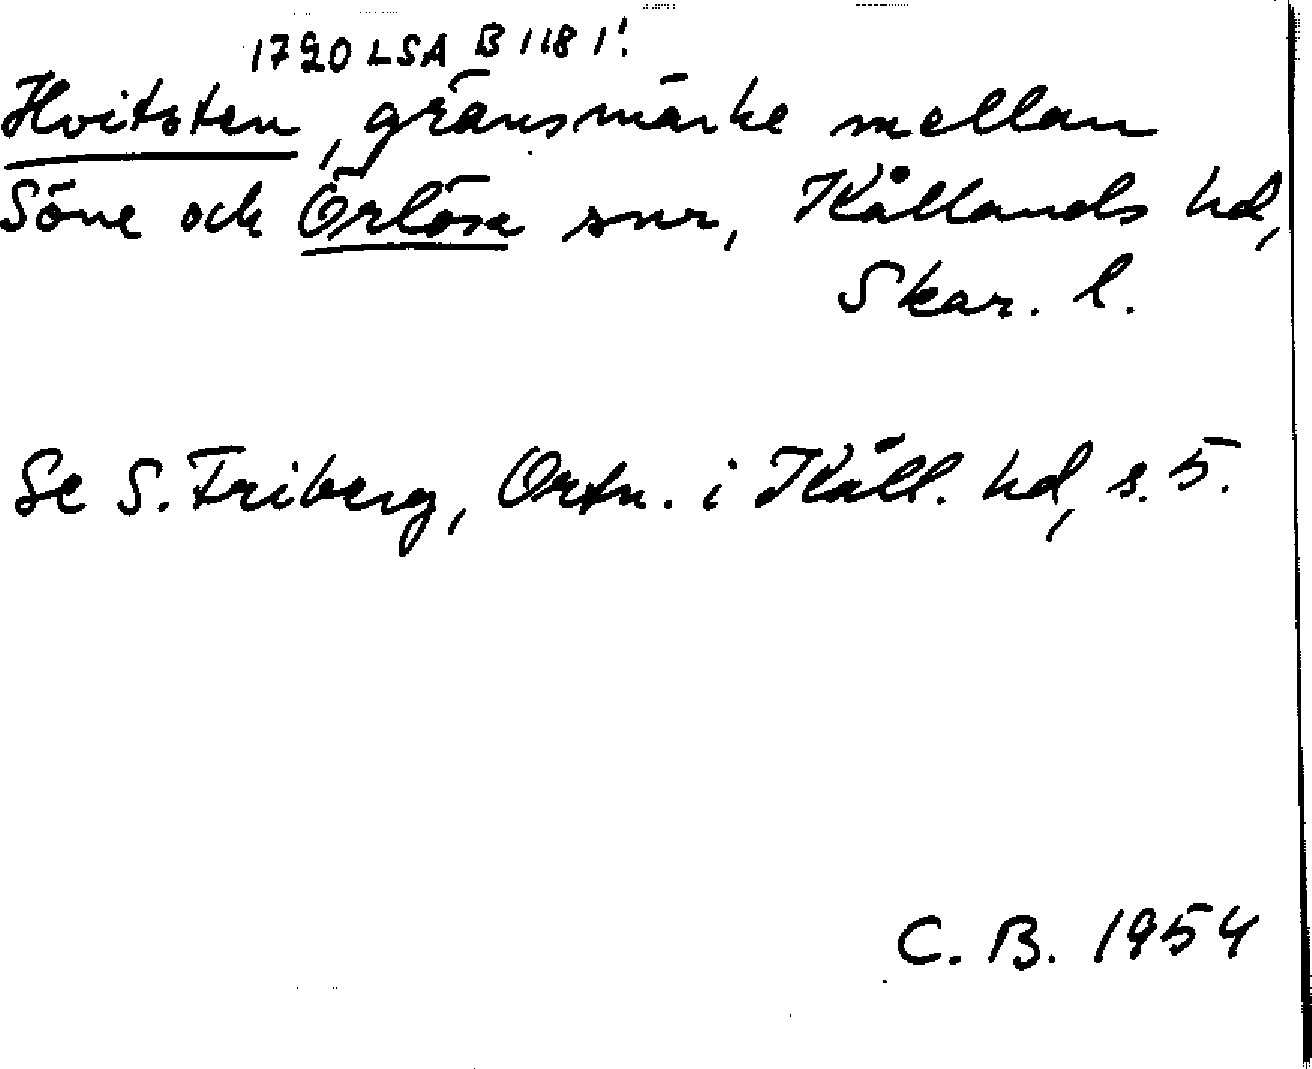 1720 LSA B 118 1'.
Hvitsten, gränsmärke mellan
Söne och Örlösa snr, Kållands hd,
Skar. l.
Se S. Friberg, Ortn. i Kåll. hd, s. 5.
C. B. 1954